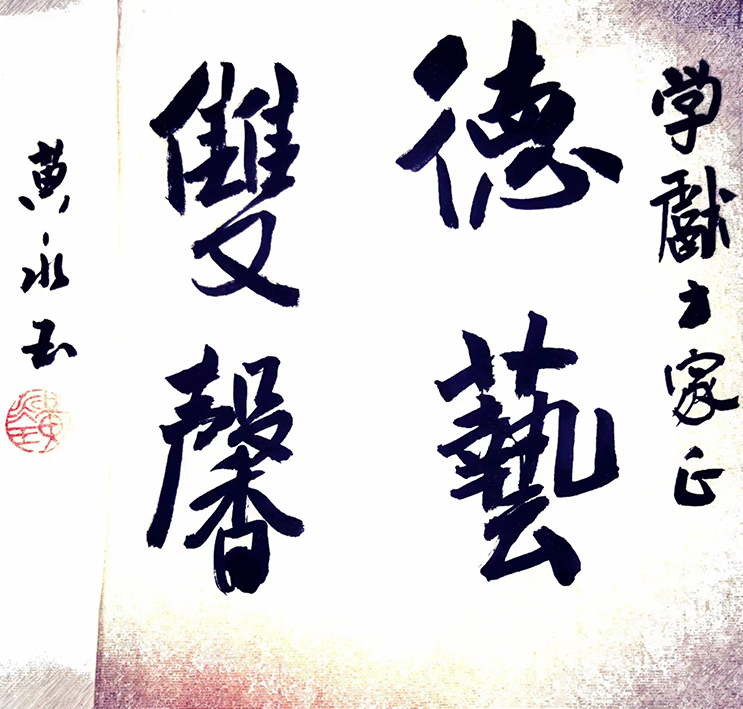 学獻方家正
德藝
雙馨
黄永玉